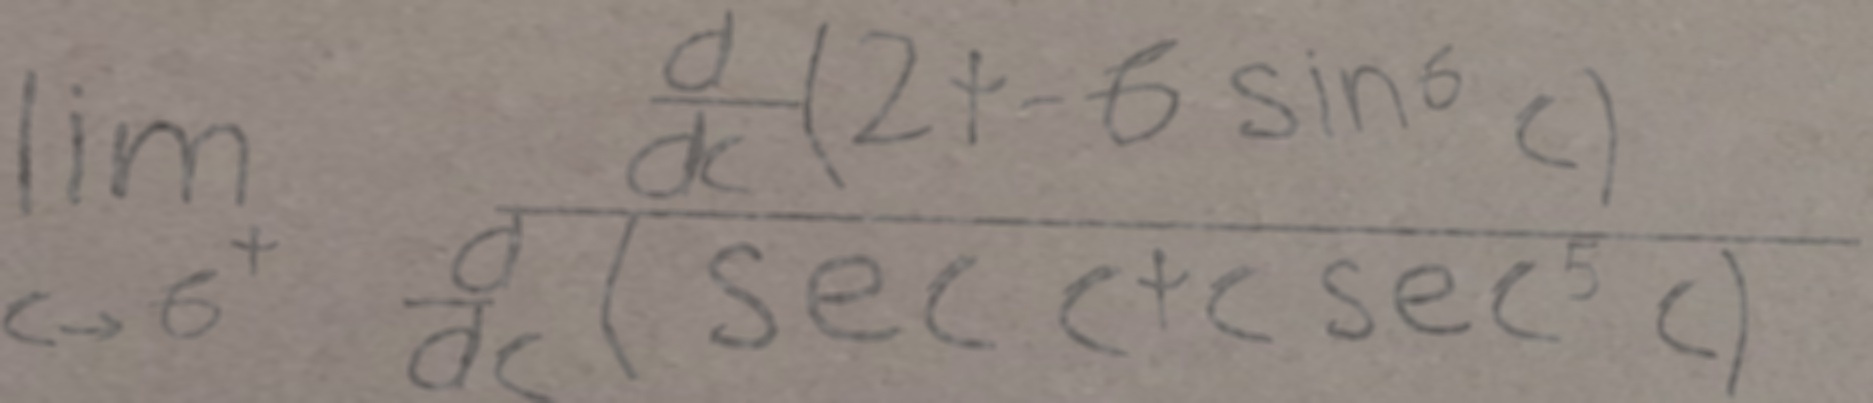 \lim_{c \to 6^+} \frac{\frac{d}{dc}(2+-6\sin^6 c)}{\frac{d}{dc}(\sec c+c\sec^5 c)}